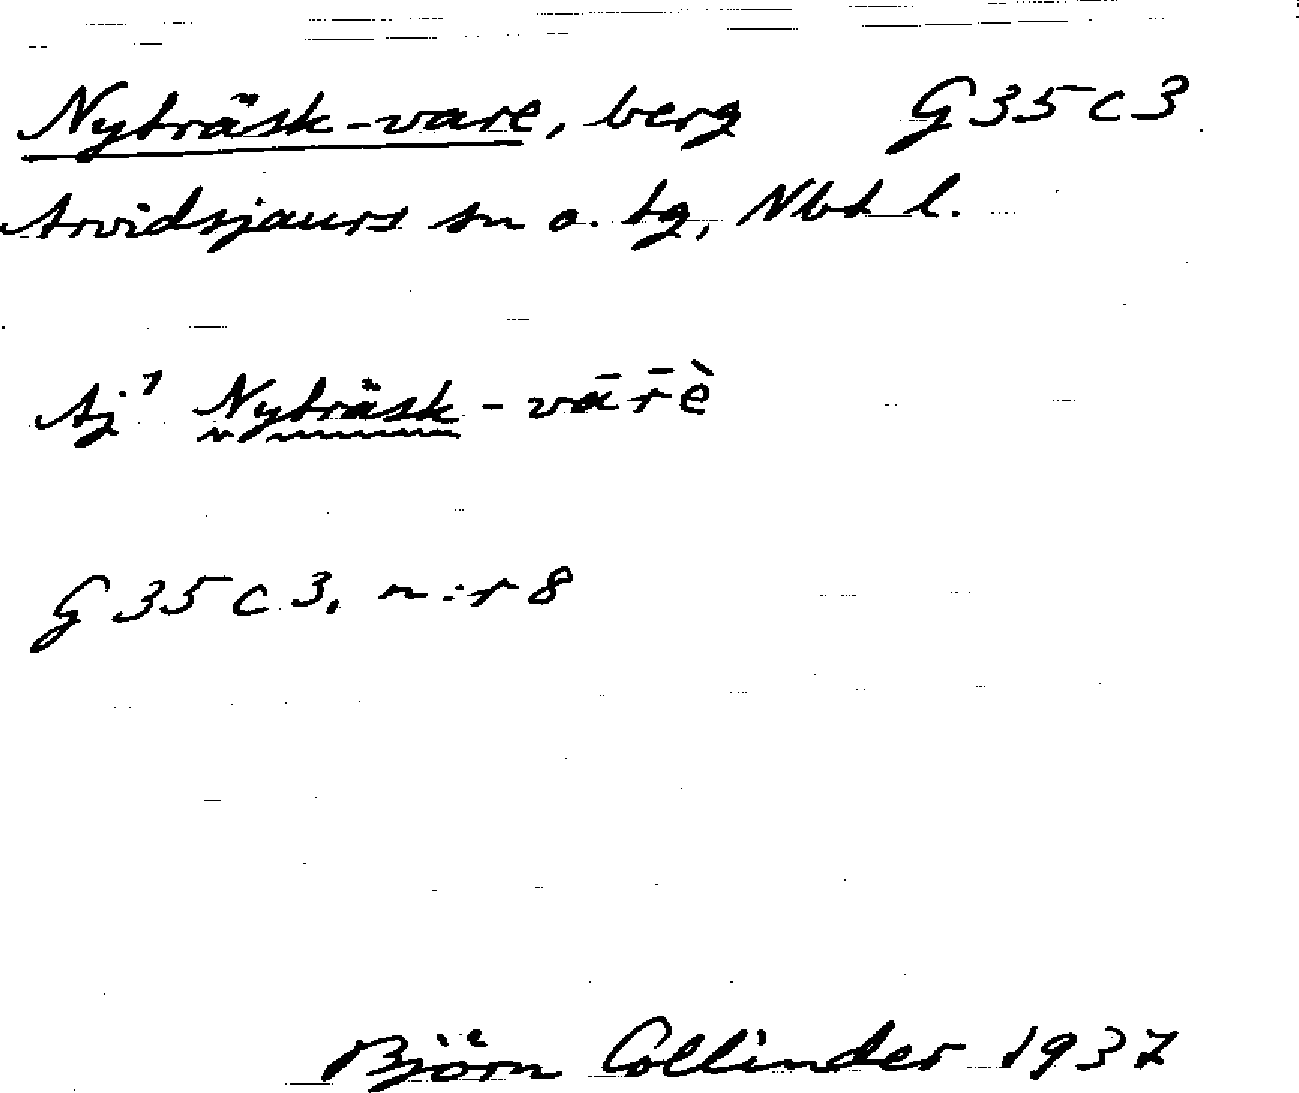 Nyträsk-vare, berg G35c3
Arvidsjaurs sn o. tg, Nbt l.
Aj¹ Nyträsk-vār̄è
G35c3, n:r 8
Björn Collinder 1937